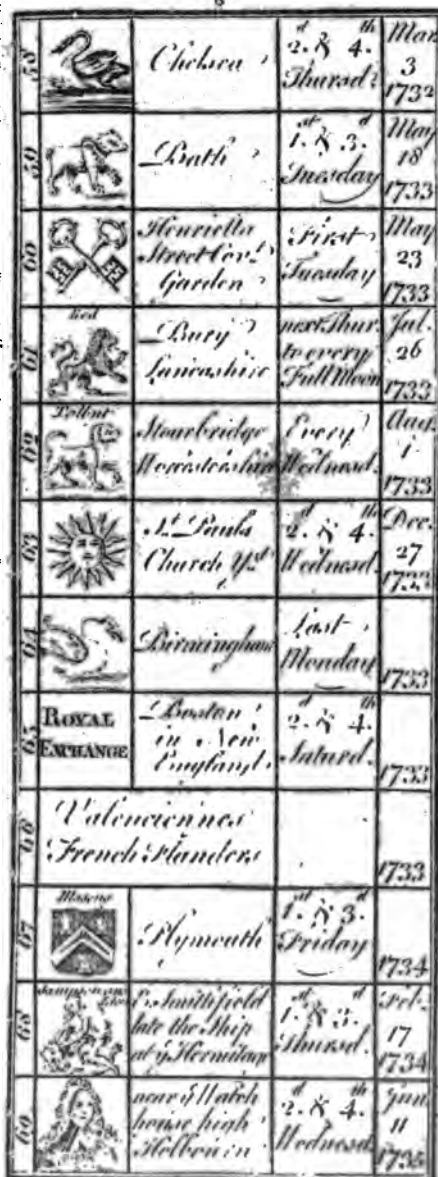 58
Chelsea
2.d & 4.th
Thursd.
Mar.
3
1732
59
Bath
1.st & 3.d
Tuesday
May
18
1733
60
Henrietta
Street Cov.t
Garden
First
Tuesday
May
23
1733
61
Red
Bury
Lancashire
next Thur.
to every
Full Moon
Jul.
26
1733
62
Talbut
Stourbridge
Worcestershire
Every
Wednesd.
Aug.
1
1733
63
St. Pauls
Church Yd.
2.d & 4.th
Wednesd.
Dec.
27
64
Birmingham
Last
Monday
1733
65
ROYAL
EXCHANGE
Boston
in New
England
2.d & 4.th
Saturd.
1733
66
Valenciennes
French Flanders
1733
67
Masons
Plymouth
1.st & 3.d
Friday
1734
68
E. Smithfield
late the Ship
at ye Hermitage
1.st & 3.d
Thursd.
Feb.
17
1734
69
near ye Watch
house high
Holbourn
2.d & 4.th
Wednesd.
Jun
11
1735